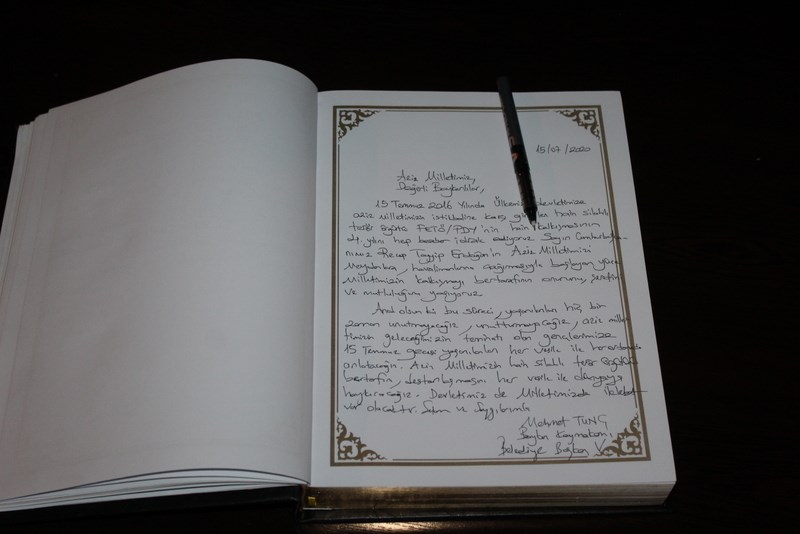 15/07/2020
Aziz Milletimiz,
Değerli Baykanlılar,
15 Temmuz 2016 Yılında Ülkemize, devletimize
aziz Milletimizin istiklaline karşı hain silahlı
terör örgütü FETÖ/PDY'nin hain kalkışmasının
4. yılını hep beraber idrak ediyoruz. Sayın Cumhurbaşka-
nımız Recep Tayyip Erdoğan'ın Aziz Milletimizi
Meydanlara, havalimanlarına çağırmasıyla başlayan yüce
Milletimizin kalkışmayı bertarafının onurunu, şerefini
ve mutluluğunu yaşıyoruz.
And olsun ki bu süreci, yaşananları hiç bir
zaman unutmayacağız, unutturmayacağız, aziz mille-
timizin geleceğimizin teminatı olan gençlerimize
15 Temmuz gecesi yaşanılanları her vesile ile
anlatacağız. Aziz Milletimizin hain silahlı terör örgütünü
bertarafın, destanlaşmasını her vesile ile dünyaya
haykıracağız. Devletimiz de Milletimizde
var olacaktır. Selam ve Saygılarımla
Mehmet TUNÇ
Baykan Kaymakamı
Belediye Başkan V.